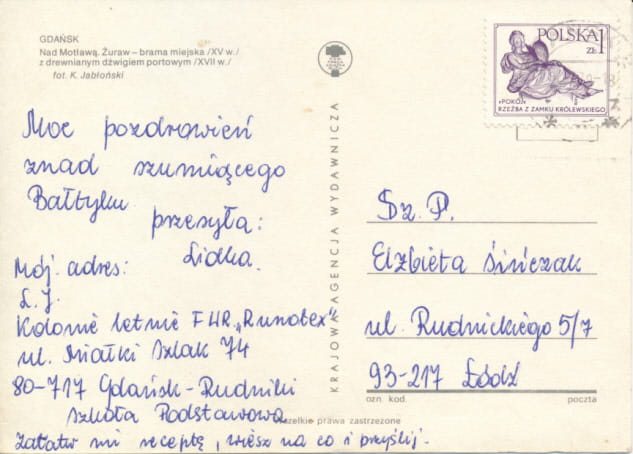 GDAŃSK
Nad Motławą. Żuraw – brama miejska /XV w./
z drewnianym dźwigiem portowym /XVII w./
fot. K. Jabłoński
POLSKA 1
ZŁ
»POKÓJ«
RZEŹBA Z ZAMKU KRÓLEWSKIEGO
Moc pozdrowień
znad szumiącego
Bałtyku
przesyła:
Lidka.
Mój. adres:
L.J.
Kolonie letnie FWR. „Runotex”
ul. Miałki Szlak 74
80-717 Gdańsk-Rudniki
szkoła Podstawowa
Załatw mi receptę, wiesz na co i przyślij.
KRAJOWA AGENCJA WYDAWNICZA
Sz. P.
Elżbieta
ul. Rudnickiego 5/7
93-217 Łódź
ozn. kod. poczta
Wszelkie prawa zastrzeżone